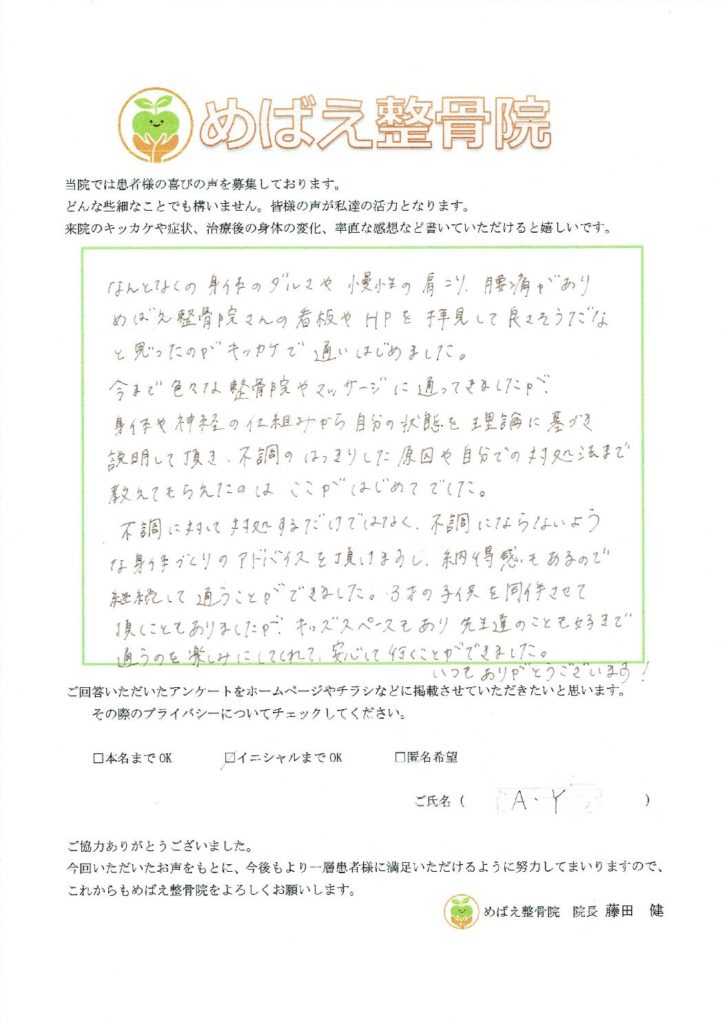 めばえ整骨院
当院では患者様の喜びの声を募集しております。
どんな些細なことでも構いません。皆様の声が私達の活力となります。
来院のキッカケや症状、治療後の身体の変化、率直な感想など書いていただけると嬉しいです。
なんとなくの身体のダルさや慢性の肩こり、腰痛があり
めばえ整骨院さんの看板やHPを拝見して良さそうだな
と思ったのがキッカケで通いはじめました。
今まで色々な整骨院やマッサージに通ってきましたが、
身体や神経の仕組みから自分の状態を理論に基づき
説明して頂き、不調のはっきりした原因や自分での対処法まで
教えてもらえたのはここがはじめてでした。
不調に対して対処するだけではなく、不調にならないよう
な身体づくりのアドバイスを頂けますし、納得感もあるので
継続して通うことができました。3才の子供を同伴させて
頂くこともありましたが、キッズスペースもあり先生達のことも好きで
通うのを楽しみにしてくれて、安心して行くことができました。
いつもありがとうございます!
ご回答いただいたアンケートをホームページやチラシなどに掲載させていただきたいと思います。
その際のプライバシーについてチェックしてください。
□本名までOK ☑イニシャルまでOK □匿名希望
ご氏名( A・Y )
ご協力ありがとうございました。
今回いただいたお声をもとに、今後もより一層患者様に満足いただけるように努力してまいりますので、
これからもめばえ整骨院をよろしくお願いします。
めばえ整骨院 院長 藤田 健